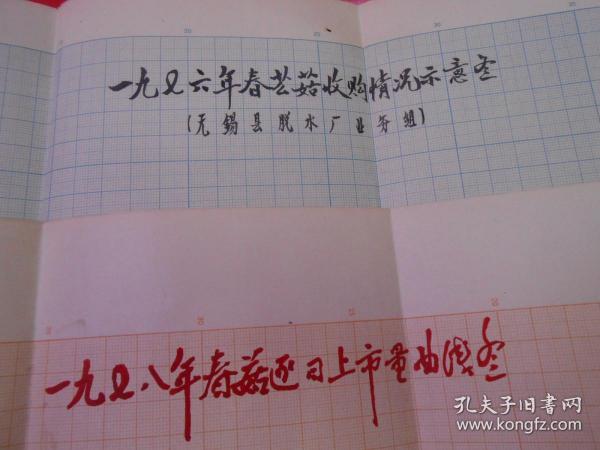 一九七六年春芸菇收购情况示意图
(无锡县脱水厂业务组)
一九七八年春菇逐日上市量曲线图
孔夫子旧书网
www.kongfz.com